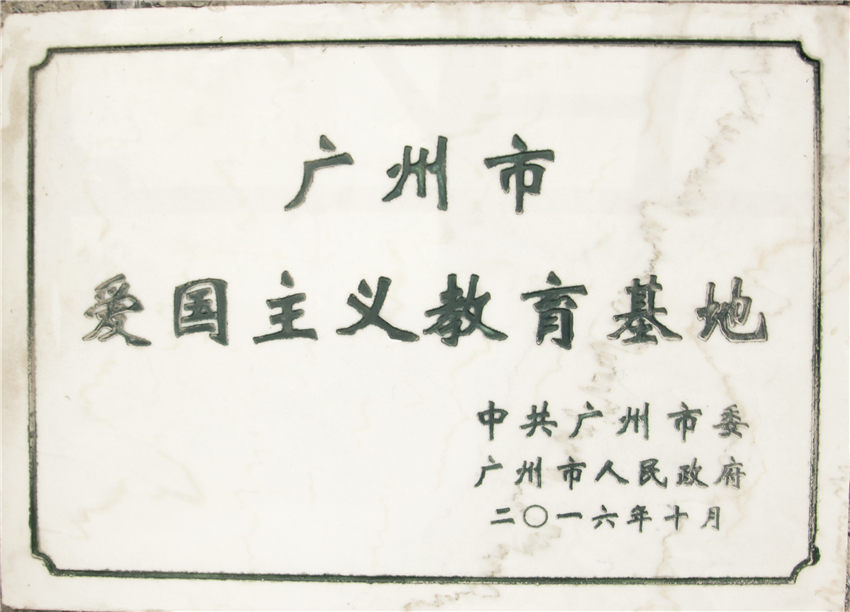 广州市
爱国主义教育基地
中共广州市委
广州市人民政府
二〇一六年十月